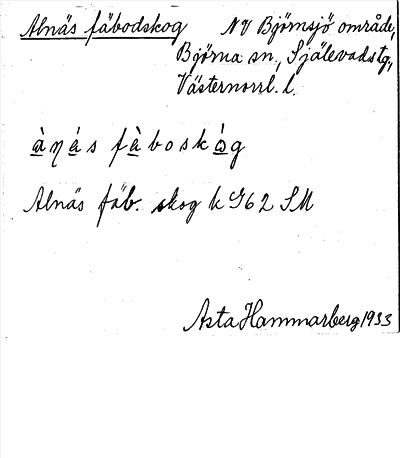 Alnäs fäbodskog NV Björnsjö område,
Björna sn., Själevads tg,
Västernorrl. l.
à ŋ á s f à b o s k ò̀ g
Alnäs fäb. skog k G62 SM
Asta Hammarberg 1933